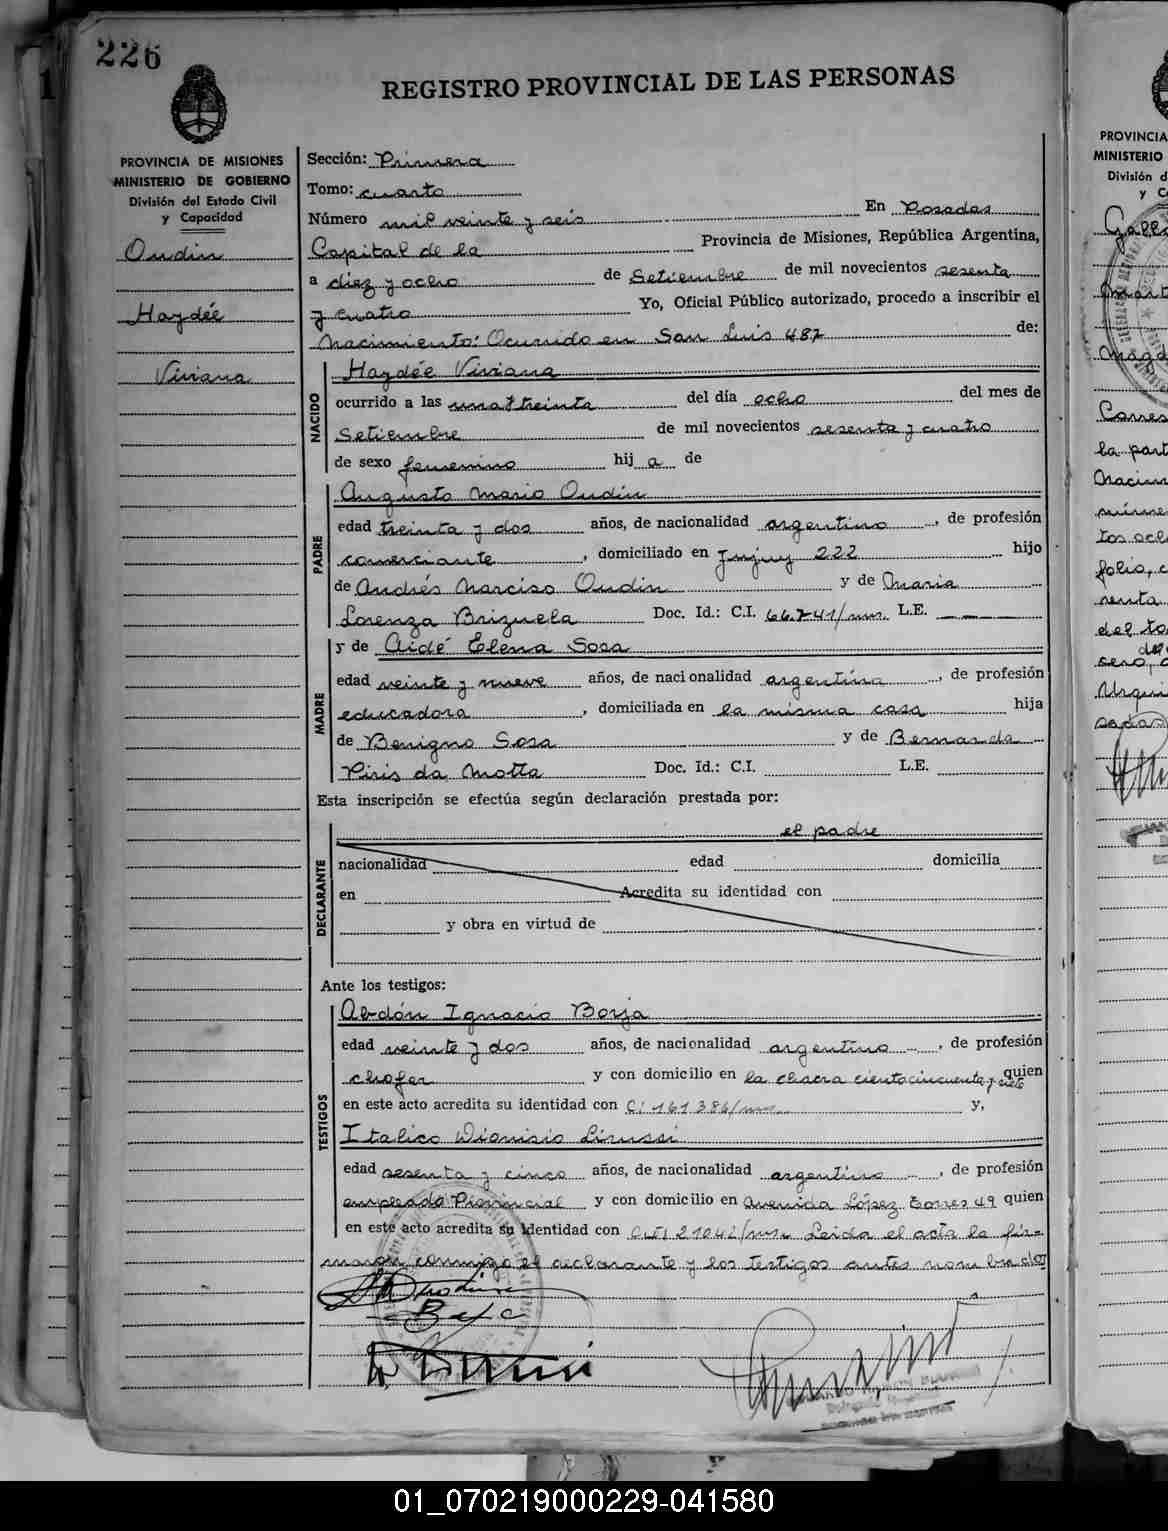 226
REGISTRO PROVINCIAL DE LAS PERSONAS
PROVINCIA DE MISIONES
MINISTERIO DE GOBIERNO
División del Estado Civil
y Capacidad
Oudin
Haydée
Viviana
Sección: Primera
Tomo: cuarto
Número mil veinte y seis En Posadas
Capital de la Provincia de Misiones, República Argentina,
a diez y ocho de Setiembre de mil novecientos sesenta
y cuatro Yo, Oficial Público autorizado, procedo a inscribir el
Nacimiento: Ocurrido en San Luis 487 de:
NACIDO
Haydée Viviana
ocurrido a las una treinta del día ocho del mes de
Setiembre de mil novecientos sesenta y cuatro
de sexo femenino hij a de
PADRE
Augusto Mario Oudin
edad treinta y dos años, de nacionalidad argentino, de profesión
comerciante, domiciliado en Jujuy 222 hijo
de Andrés Narciso Oudin y de Maria
Lorenza Brizuela Doc. Id.: C.I. 66.741/mns. L.E.
MADRE
y de Aidé Elena Sosa
edad veinte y nueve años, de nacionalidad argentina, de profesión
educadora, domiciliada en la misma casa hija
de Benigno Sosa y de Bernarda
Piris da Motta Doc. Id.: C.I. L.E.
Esta inscripción se efectúa según declaración prestada por:
DECLARANTE
el padre
nacionalidad edad domicilia
en Acredita su identidad con
y obra en virtud de
Ante los testigos:
TESTIGOS
Abdón Ignacio Borja
edad veinte y dos años, de nacionalidad argentino, de profesión
chofer y con domicilio en la chacra cientocincuenta y siete quien
en este acto acredita su identidad con C. 161386/mns. y,
Italico Dionisio Lirussi
edad sesenta y cinco años, de nacionalidad argentino, de profesión
empleado Provincial y con domicilio en avenida López Torres 49 quien
en este acto acredita su identidad con 21042/mns Leida el acta la fir-
maron conmigo el declarante y los testigos antes nombrados
PROVINCIA
MINISTERIO
División d
la part
folio, c
del to
01_070219000229-041580